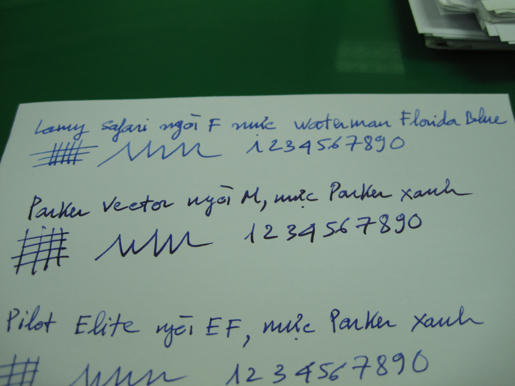 Lamy Safari ngòi F mực Waterman Florida Blue
1234567890
Parker Vector ngòi M, mực Parker xanh
1234567890
Pilot Elite ngòi EF, mực Parker xanh
1234567890